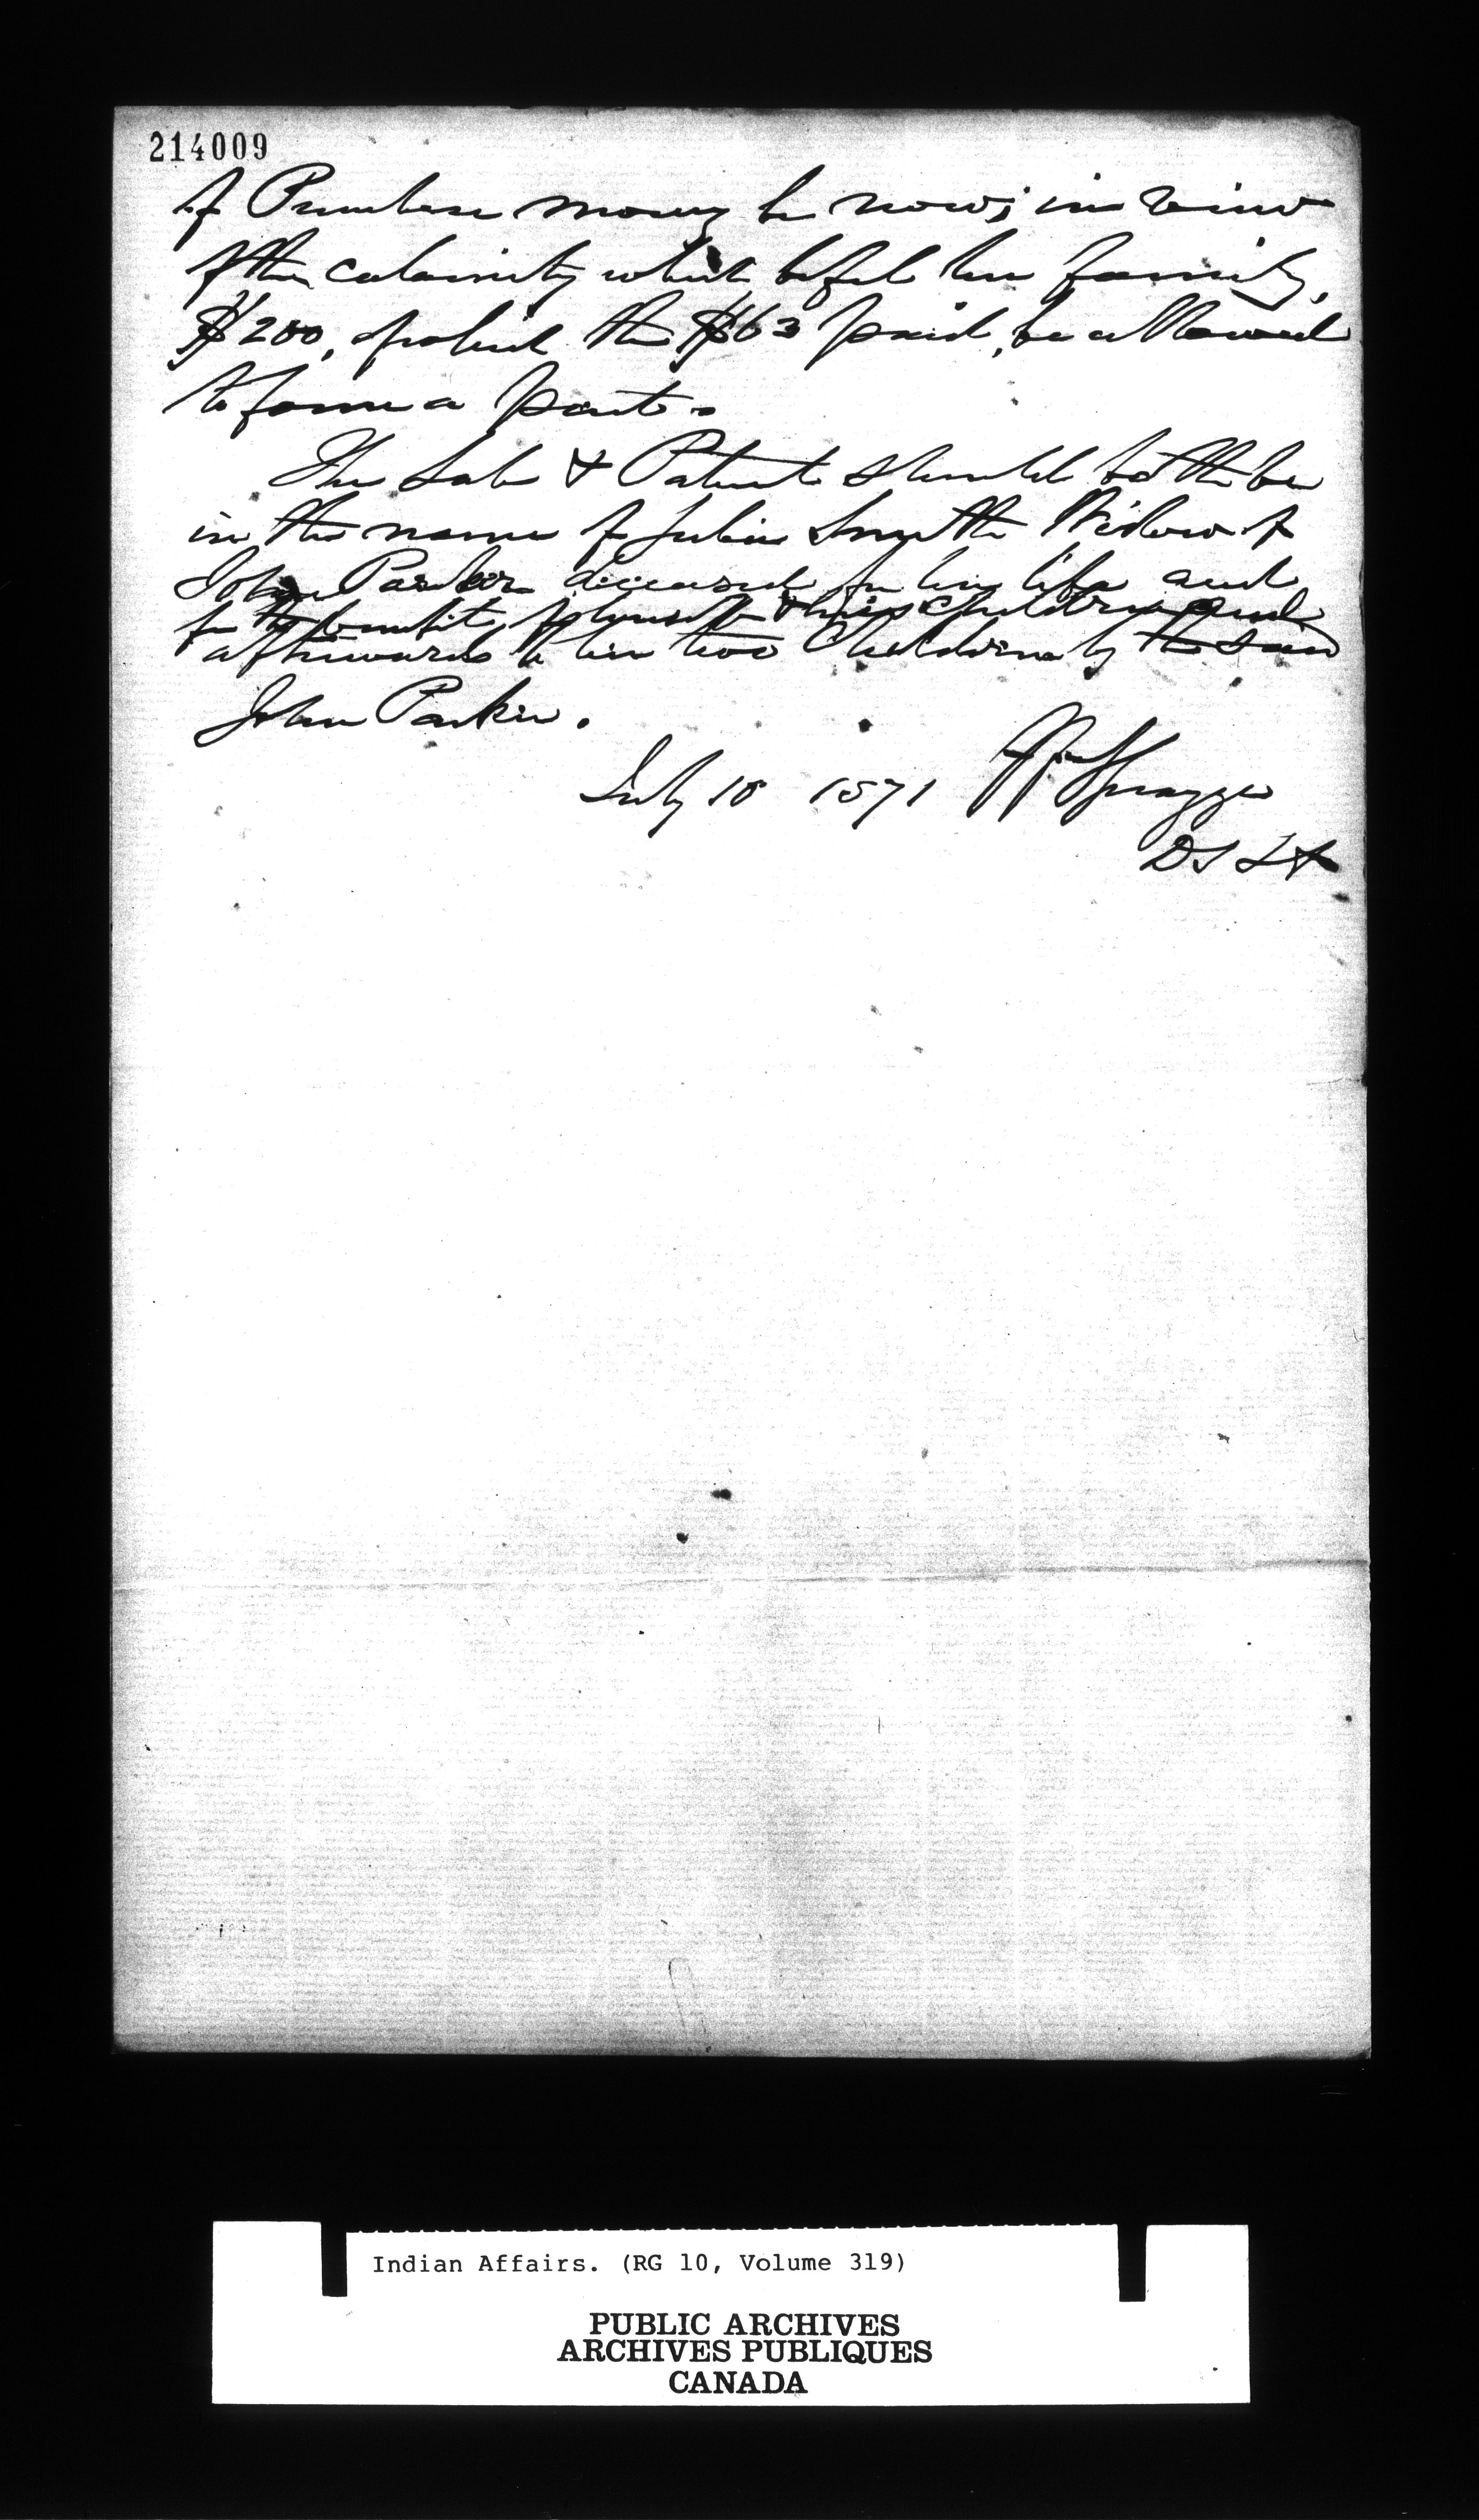 214009
of Purchase money be now; in view
of the calamity which befel her family,
$200, of which the $63 paid, be allowed
to form a part.
The Sale & Patent should both be
in the name of Julia Smith Widow of
John Parker deceased for her life and
for the benefit of herself & her children and
afterwards to her two Children by the said
John Parker.
July 18 1871 Spragge
DSIA
Indian Affairs. (RG 10, Volume 319)
PUBLIC ARCHIVES
ARCHIVES PUBLIQUES
CANADA